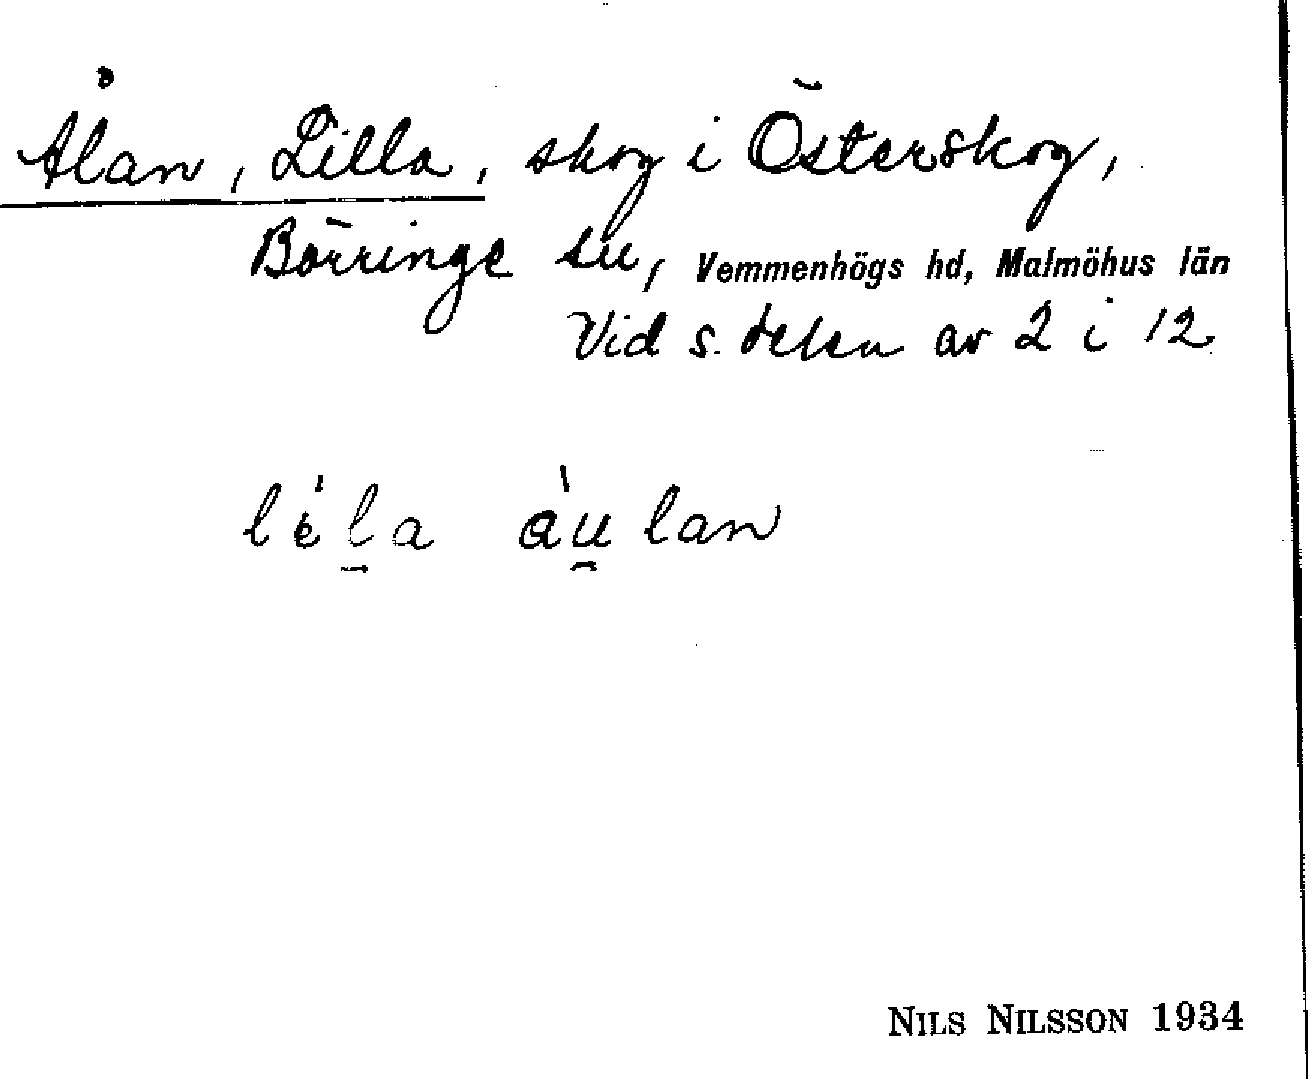 Ålan, Lilla, skog i Österskog,
Börringe sn, Vemmenhögs hd, Malmöhus län
Vid s. delen av 2 i 12
lèḻa àu̯lan
NILS NILSSON 1934